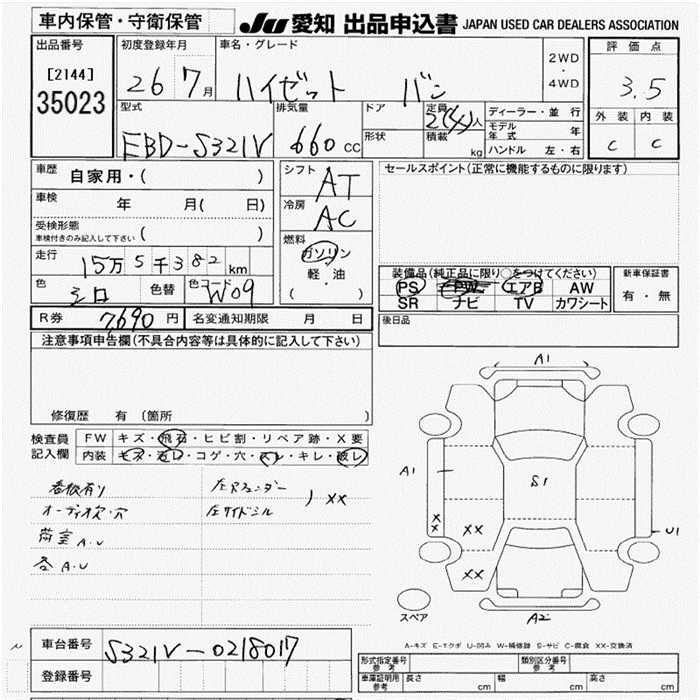 車内保管・守衛保管
JU 愛知 出品申込書 JAPAN USED CAR DEALERS ASSOCIATION
出品番号
[2144]
35023
初度登録年月
26 7月
車名・グレード
ハイゼット バン
2WD
・
4WD
評価点
3.5
外装 内装
C C
型式
EBD-S321V
排気量
660 cc
ドア
形状
定員
2(4)人
積載
kg
ディーラー・並行
モデル年式 年
ハンドル 左・右
車歴
自家用・( )
車検
年 月( 日)
受検形態
車検付きのみ記入して下さい ( )
走行
15万5千382km
色
シロ
色替
色コード
W09
シフト
AT
冷房
AC
燃料
ガソリン
軽・油
( )
セールスポイント(正常に機能するものに限ります)
装備品(純正品に限り○をつけてください)
PS PW エアB AW
SR ナビ TV カワシート
新車保証書
有・無
後日品
R券 7,690円
名変通知期限 月 日
注意事項申告欄(不具合内容等は具体的に記入して下さい)
修復歴 有(箇所 )
検査員
記入欄
FW キズ・飛石・ヒビ割・リペア跡・X要
内装 キズ・汚レ・コゲ・穴・スレ・キレ・破レ
看板有り
オーディオ欠・穴
荷室 A.U
各 A.U
左Rフェンダー
左サイドシル
) XX
A1
A1
S1
X
X
XX
XX
U1
A2
スペア
A-キズ E-エクボ U-凹み W-補修跡 S-サビ C-腐食 XX-交換済
車台番号
S321V-0218017
登録番号
形式指定番号
参考
類別区分番号
参考
車庫証明用
参考
長さ cm
幅 cm
高さ cm